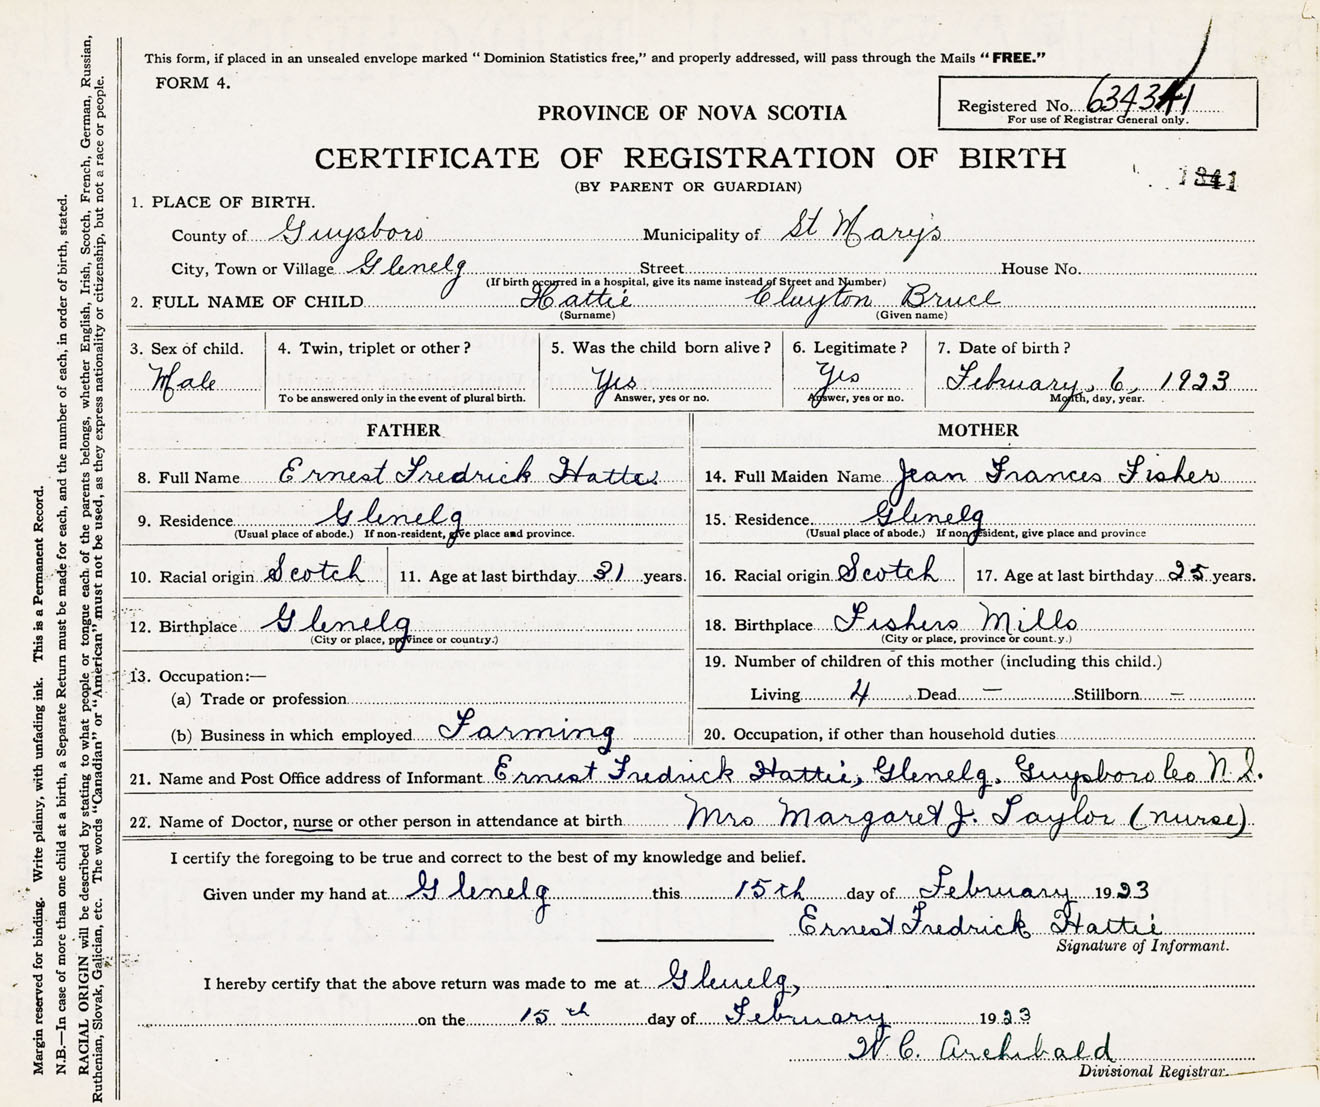 This form, if placed in an unsealed envelope marked “ Dominion Statistics free,” and properly addressed, will pass through the Mails “ FREE.”
FORM 4.
Registered No. 634341
For use of Registrar General only.
PROVINCE OF NOVA SCOTIA
CERTIFICATE OF REGISTRATION OF BIRTH
(BY PARENT OR GUARDIAN)
1. PLACE OF BIRTH.
County of Guysboro Municipality of St Mary's
City, Town or Village Glenelg Street House No.
(If birth occurred in a hospital, give its name instead of Street and Number)
2. FULL NAME OF CHILD Hattie Clayton Bruce
(Surname) (Given name)
3. Sex of child. 4. Twin, triplet or other? 5. Was the child born alive? 6. Legitimate? 7. Date of birth?
Male Yes Yes February, 6, 1923
To be answered only in the event of plural birth. Answer, yes or no. Answer, yes or no. Month, day, year.
FATHER MOTHER
8. Full Name Ernest Fredrick Hattie 14. Full Maiden Name Jean Frances Fisher
9. Residence Glenelg 15. Residence. Glenelg
(Usual place of abode.) If non-resident, give place and province. (Usual place of abode.) If non-resident, give place and province
10. Racial origin Scotch 11. Age at last birthday 31 years. 16. Racial origin Scotch 17. Age at last birthday 25 years.
12. Birthplace Glenelg 18. Birthplace Fishers Mills
(City or place, province or country.) (City or place, province or country.)
13. Occupation:— 19. Number of children of this mother (including this child.)
(a) Trade or profession Living 4 Dead — Stillborn —
(b) Business in which employed Farming 20. Occupation, if other than household duties
21. Name and Post Office address of Informant Ernest Fredrick Hattie, Glenelg, Guysboro Co N.S.
22. Name of Doctor, nurse or other person in attendance at birth Mrs Margaret J. Taylor (nurse)
I certify the foregoing to be true and correct to the best of my knowledge and belief.
Given under my hand at Glenelg this 15th day of February 1923
Ernest Fredrick Hattie
Signature of Informant.
I hereby certify that the above return was made to me at Glenelg,
on the 15th day of February 1923
W. C. Archibald
Divisional Registrar.
Margin reserved for binding. Write plainly, with unfading ink. This is a Permanent Record.
N.B.—In case of more than one child at a birth, a Separate Return must be made for each, and the number of each, in order of birth, stated.
RACIAL ORIGIN will be described by stating to what people or tongue each of the parents belongs, whether English, Irish, Scotch, French, German, Russian,
Ruthenian, Slovak, Galician, etc. The words “Canadian” or “American” must not be used, as they express nationality or citizenship, but not a race or people.